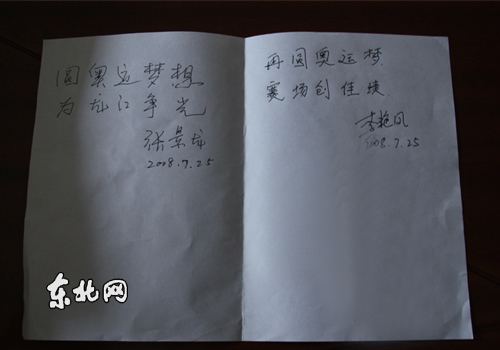 圆奥运梦想
为龙江争光
张景龙
2008.7.25
再圆奥运梦
赛场创佳绩
李艳凤
2008.7.25
东北网